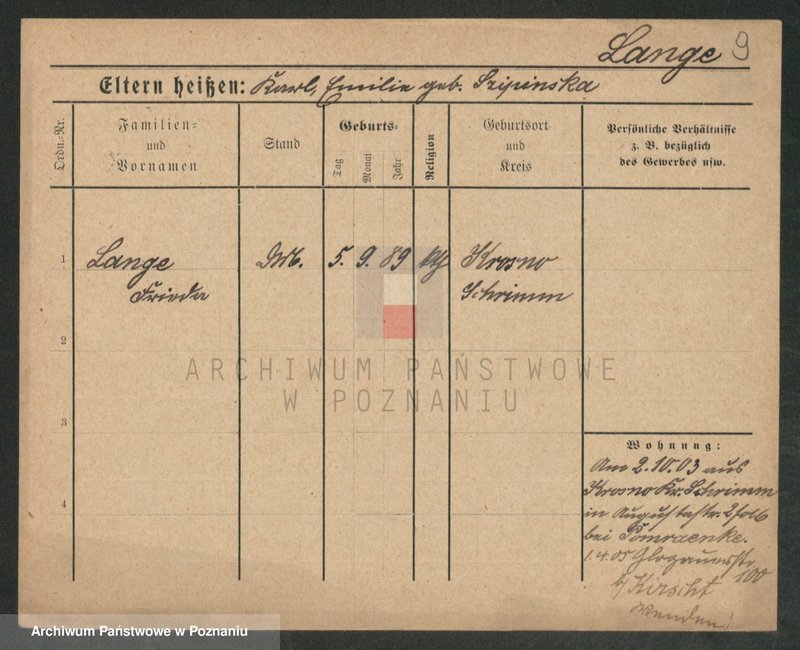 Lange 9
Eltern heißen: Karl, Emilie geb. Szipinska
Ordn.-Nr.
Familien- und Vornamen
Stand
Geburts-
Tag
Monat
Jahr
Religion
Geburtsort und Kreis
Persönliche Verhältnisse
z. B. bezüglich
des Gewerbes usw.
1
Lange 5. 9. 89 Krosno
Frieda Schrimm
2
ARCHIWUM PAŃSTWOWE
W POZNANIU
3
Wohnung:
Am 2.10.03 aus
Krosno Kr. Schrimm
in Augustastr. 2
bei
1.4.05 Glogauerstr.
100
b/ Kirscht
Wenden!
4
Archiwum Państwowe w Poznaniu